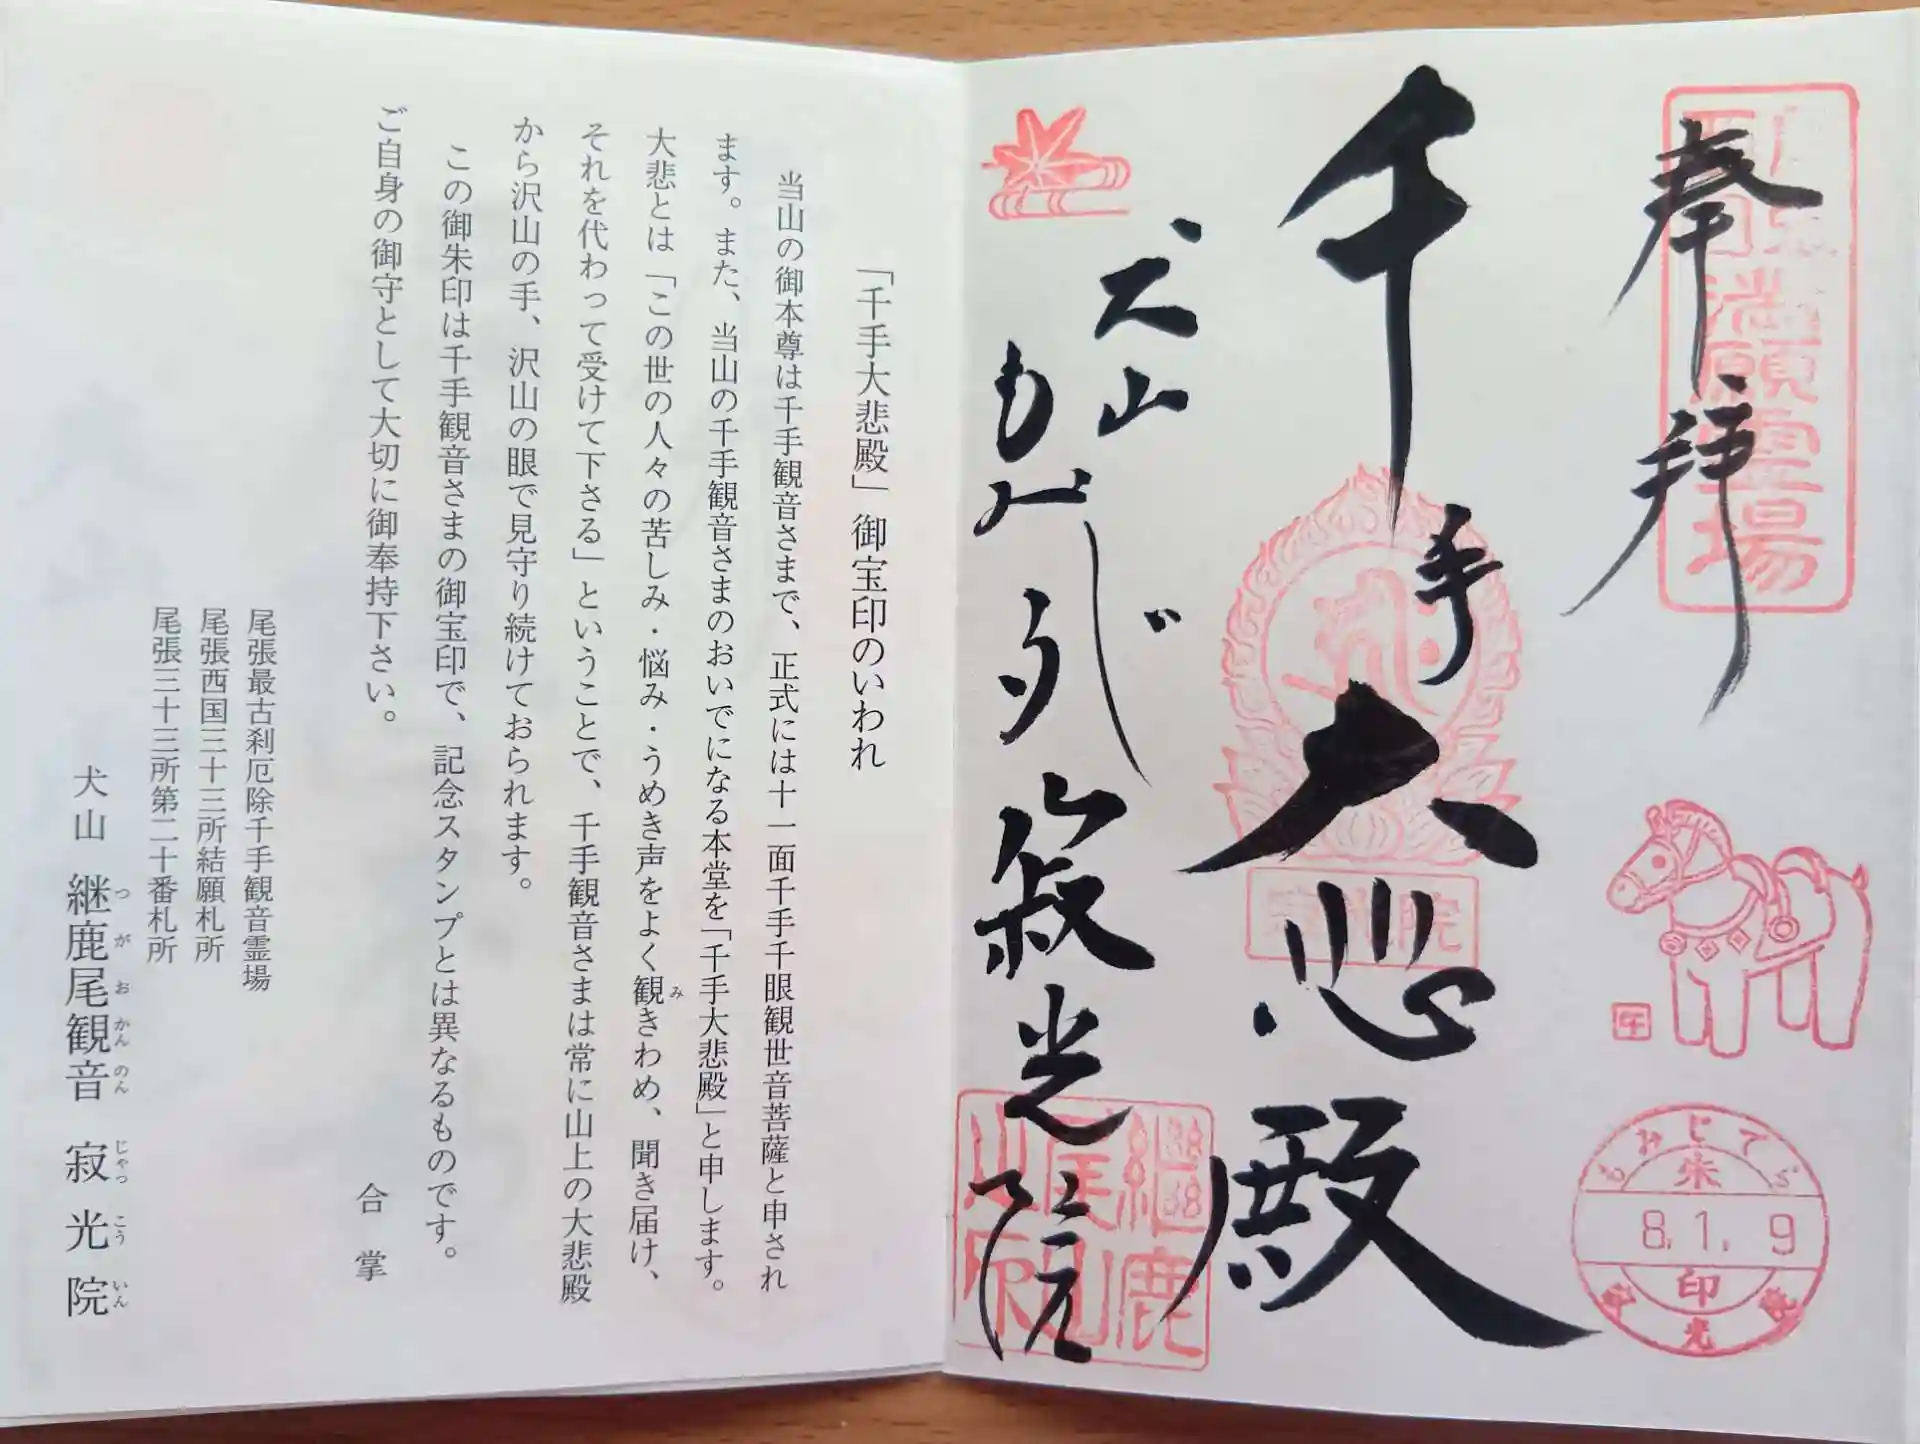 奉拝
千手大悲殿
犬山
もみじでら
寂光院
満願霊場
午
もみじでら
朱
8.1.9
印
寂光院
「千手大悲殿」御宝印のいわれ
当山の御本尊は千手観音さまで、正式には十一面千手千眼観世音菩薩と申され
ます。また、当山の千手観音さまのおいでになる本堂を「千手大悲殿」と申します。
大悲とは「この世の人々の苦しみ・悩み・うめき声をよく観きわめ、聞き届け、
み
それを代わって受けて下さる」ということで、千手観音さまは常に山上の大悲殿
から沢山の手、沢山の眼で見守り続けておられます。
この御朱印は千手観音さまの御宝印で、記念スタンプとは異なるものです。
ご自身の御守として大切に御奉持下さい。
合掌
尾張最古刹厄除千手観音霊場
尾張西国三十三所結願札所
尾張三十三所第二十番札所
犬山 継鹿尾観音 寂光院
つがおかんのん じゃっこういん